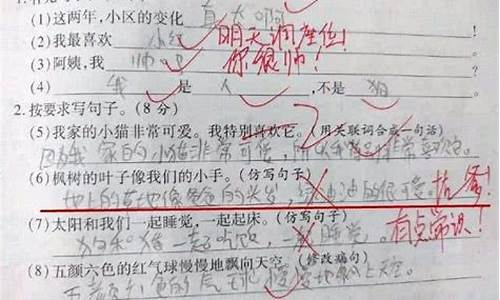 (1)这两年,小区的变化真大啊
(2)我最喜欢小红 明天调座位!
(3)阿姨,我帅吧 你很帅!
(4)我是人,不是狗
2.按要求写句子。(8 分)
(5)我家的小猫非常可爱。我特别喜欢它。(用关联词合成一句话)
因为我家的小猫非常可爱,所以我非常喜欢它。
(6)枫树的叶子像我们的小手。(仿写句子)
地上的草地像爸爸的头发,绿油油的很可爱。
(7)太阳和我们一起睡觉,一起起床。(仿写句子)
狗和猪一起吃饭,一起睡觉。 有点常识!
(8)五颜六色的红气球慢慢地飘向天空。(修改病句)
五颜六色的气球慢慢地飘上天空。